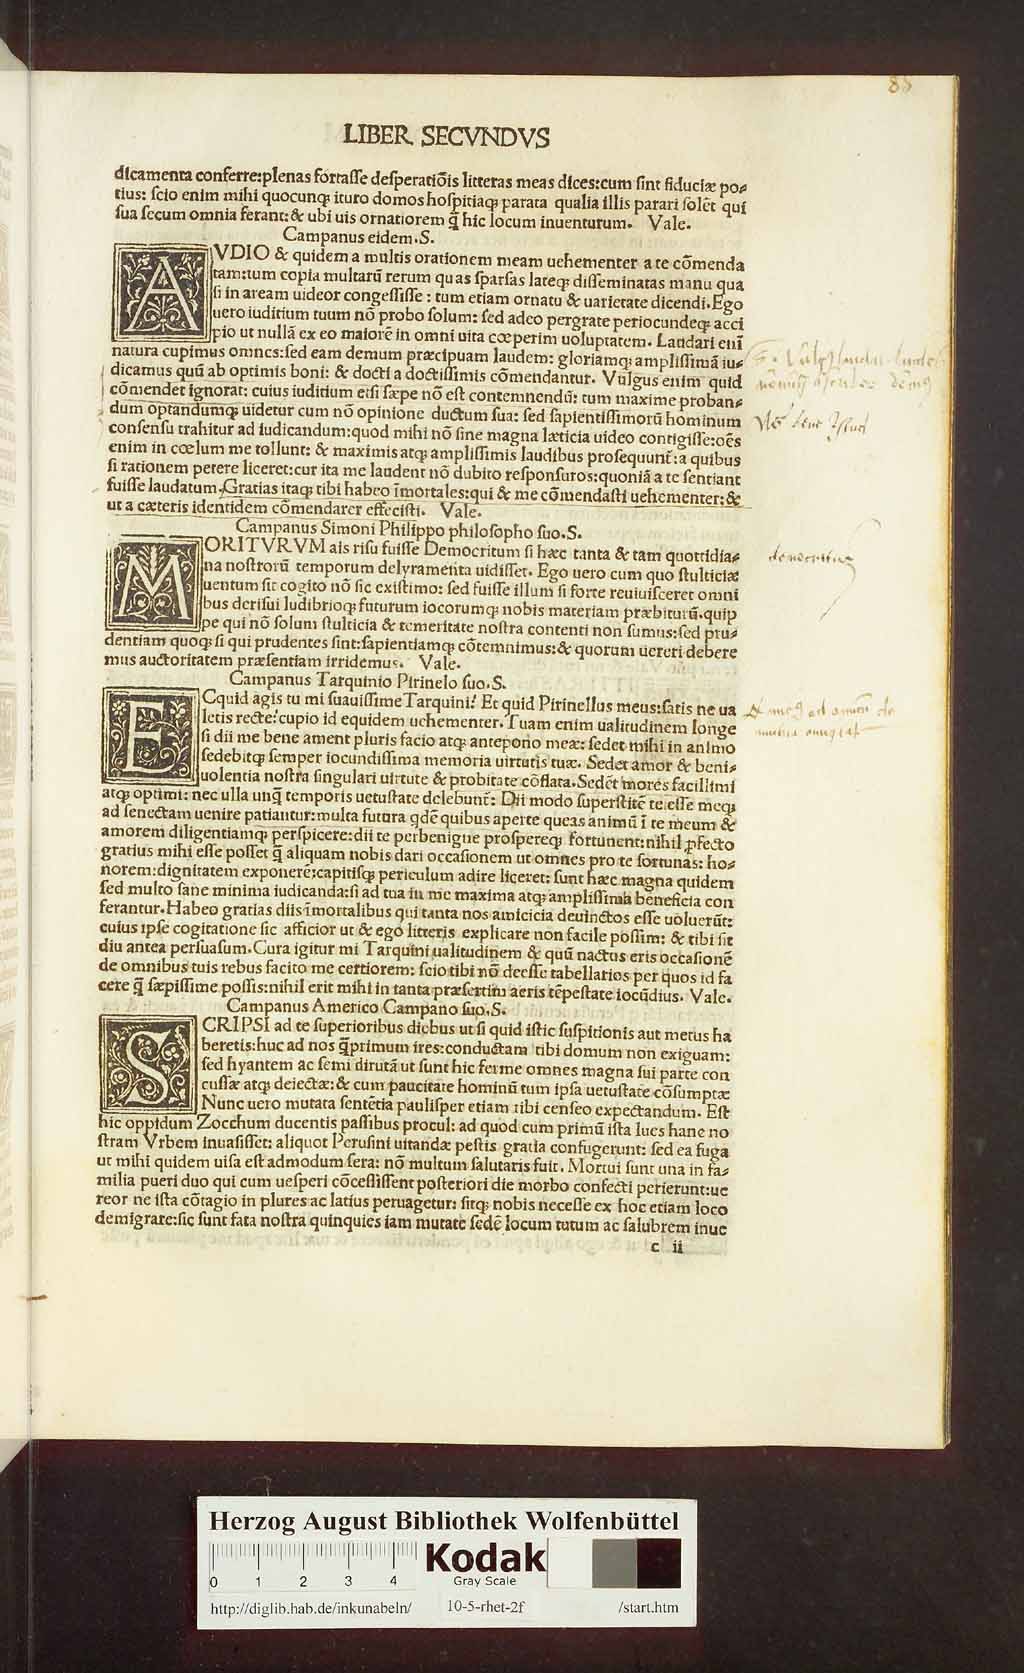 88
LIBER SECVNDVS
dicamenta conferre:plenas fortasse desperatiõis litteras meas dices:cum sint fiduciæ po-
tius: scio enim mihi quocunq; ituro domos hospitiaq; parata qualia illis parari solẽt qui
sua secum omnia ferant:& ubi uis ornatiorem q̃ hic locum inuenturum. Vale.
Campanus eidem.S.
AVDIO & quidem a multis orationem meam uehementer a te cõmenda
tam:tum copia multarũ rerum quas sparsas lateq; disseminatas manu qua
si in aream uideor congessisse : tum etiam ornatu & uarietate dicendi.Ego
uero iuditium tuum nõ probo solum: sed adeo pergrate periocundeq; acci
pio ut nullã ex eo maiorẽ in omni uita cœperim uoluptatem. Laudari eni
natura cupimus omnes:sed eam demum præcipuam laudem: gloriamq; amplissimã iu-
dicamus quũ ab optimis boni: & docti a doctissimis cõmendantur. Vulgus enim quid
cõmendet ignorat: cuius iuditium etsi sæpe nõ est contemnendũ: tum maxime proban-
dum optandumq; uidetur cum nõ opinione ductum sua: sed sapientissimorũ hominum
consensu trahitur ad iudicandum:quod mihi nõ sine magna læticia uideo contigisse:oẽs
enim in cœlum me tollunt: & maximis atq; amplissimis laudibus prosequunt̃:a quibus
si rationem petere liceret:cur ita me laudent nõ dubito responsuros:quoniã a te sentiant
fuisse laudatum.Gratias itaq; tibi habeo ĩmortales:qui & me cõmendasti uehementer:&
ut a cæteris identidem cõmendarer effecisti. Vale.
Campanus Simoni Philippo philosopho suo.S.
MORITVRVM ais risu fuisse Democritum si hæc tanta & tam quottidia-
na nostrorũ temporum delyramenta uidisset. Ego uero cum quo stulticiæ
uentum sit cogito nõ sic existimo: sed fuisse illum si forte reuiuisceret omni
bus derisui ludibrioq; futurum iocorumq; nobis materiam præbiturũ.quip
pe qui nõ solum stulticia & temeritate nostra contenti non sumus:sed pru-
dentiam quoq; si qui prudentes sint:sapientiamq; cõtemnimus:& quorum uereri debere
mus auctoritatem præsentiam irridemus. Vale.
Campanus Tarquinio Pirinelo suo.S.
ECquid agis tu mi suauissime Tarquini? Et quid Pirinellus meus:satis ne ua
letis recte?cupio id equidem uehementer. Tuam enim ualitudinem longe
si dii me bene ament pluris facio atq; antepono meæ: sedet mihi in animo
sedebitq; semper iocundissima memoria uirtutis tuæ. Sedet amor & beni-
uolentia nostra singulari uirtute & probitate cõflata.Sedẽt mores facillimi
atq; optimi: nec ulla unq̃ temporis uetustate delebunt̃: Dii modo superstitẽ te esse meq;
ad senectam uenire patiantur:multa futura qdẽ quibus aperte queas animũ ĩ te meum &
amorem diligentiamq; perspicere:dii te perbenigne prospereq; fortunent:nihil ꝓfecto
gratius mihi esse posset q̃ aliquam nobis dari occasionem ut omnes pro te fortunas: ho-
norem:dignitatem exponerẽ:capitisq; periculum adire liceret: sunt hæc magna quidem
sed multo sane minima iudicanda:si ad tua in me maxima atq; amplissima beneficia con
ferantur.Habeo gratias diis ĩmortalibus qui tanta nos amicicia deuinctos esse uoluerũt:
cuius ipse cogitatione sic afficior ut & ego litteris explicare non facile possim: & tibi sit
diu antea persuasum.Cura igitur mi Tarquini ualitudinem & quũ nactus eris occasionẽ
de omnibus tuis rebus facito me certiorem: scio tibi nõ deesse tabellarios per quos id fa
cere q̃ sæpissime possis:nihil erit mihi in tanta præsertim aeris tẽpestate iocũdius. Vale.
Campanus Americo Campano suo.S.
SCRIPSI ad te superioribus diebus ut si quid istic suspitionis aut metus ha
beretis:huc ad nos q̃primum ires:conductam tibi domum non exiguam:
sed hyantem ac semi dirutã ut sunt hic ferme omnes magna sui parte con
cussæ atq; deiectæ:& cum paucitate hominũ tum ipsa uetustate cõsumptæ
Nunc uero mutata sentẽtia paulisper etiam tibi censeo expectandum. Est
hic oppidum Zocchum ducentis passibus procul: ad quod cum primũ ista lues hanc no
stram Vrbem inuasisset: aliquot Perusini uitandæ pestis gratia confugerunt: sed ea fuga
ut mihi quidem uisa est admodum sera: nõ multum salutaris fuit. Mortui sunt una in fa-
milia pueri duo qui cum uesperi cõcessissent posteriori die morbo confecti perierunt:ue
reor ne ista cõtagio in plures ac latius peruagetur: sitq; nobis necesse ex hoc etiam loco
demigrare:sic sunt fata nostra quinquies iam mutate sedẽ locum tutum ac salubrem inue
c ii
democritus
Herzog August Bibliothek Wolfenbüttel
0 1 2 3 4
Kodak
Gray Scale
http://diglib.hab.de/inkunabeln/ 10-5-rhet-2f /start.htm